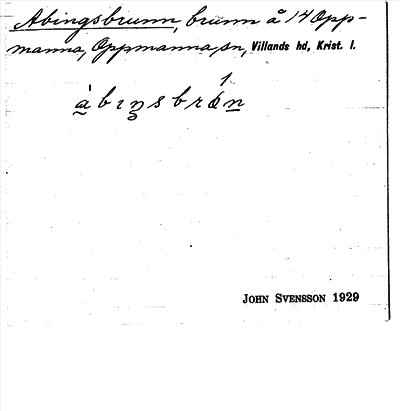 Abingsbrunn, brunn å 14 Opp-
manna, Oppmanna sn, Villands hd, Krist. l.
JOHN SVENSSON 1929